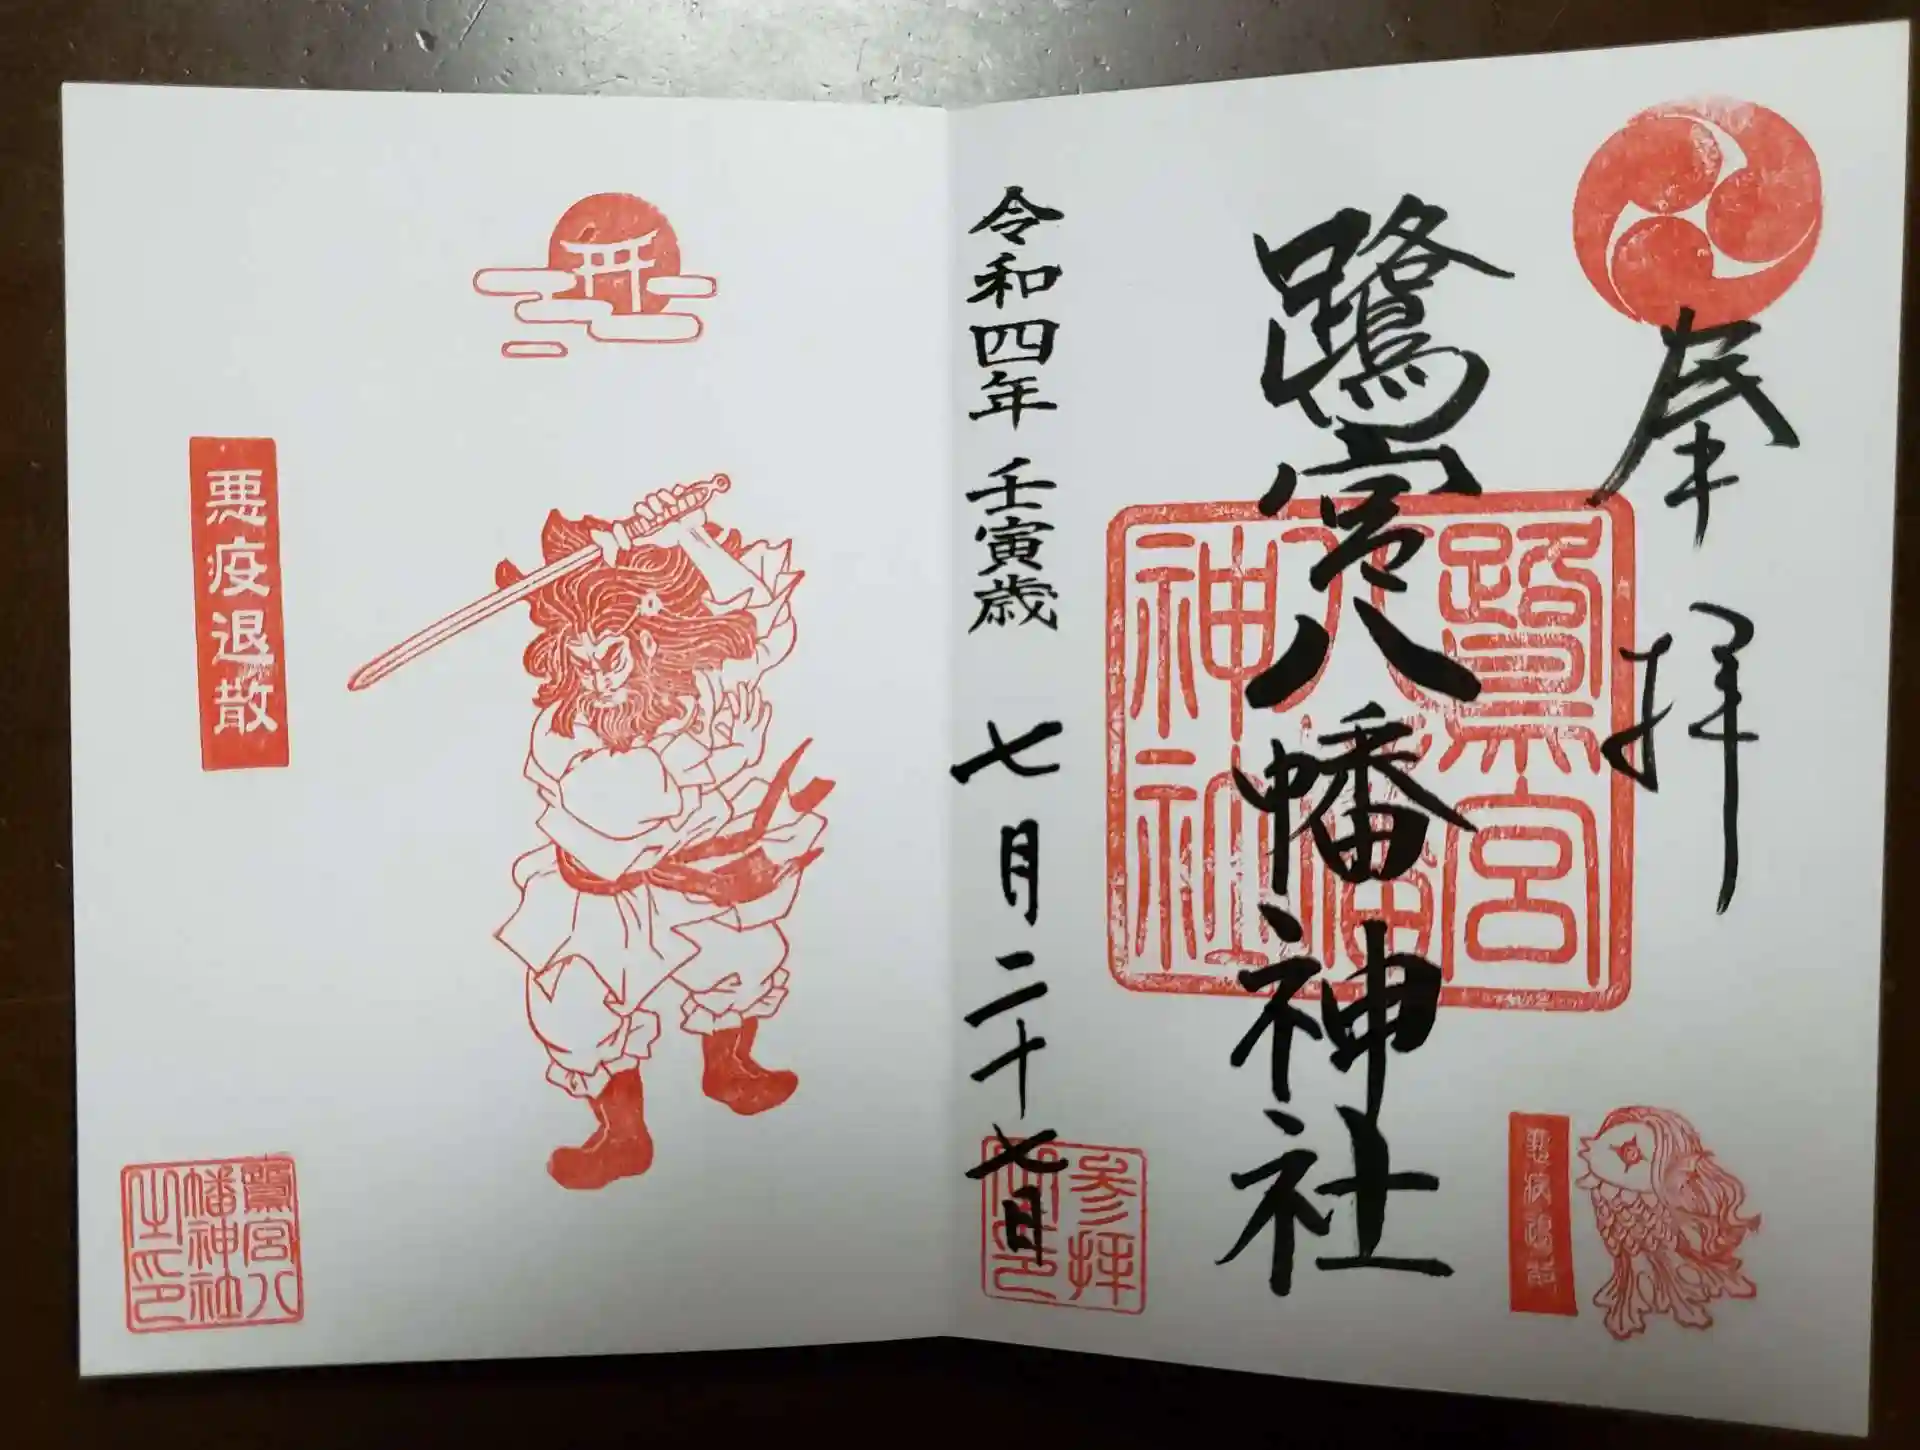 奉拝
鷺宮八幡神社
鷺宮八幡神社
悪病
令和四年 壬寅歳 七月二十七日
参拝
悪疫退散
鷺宮八幡神社之印